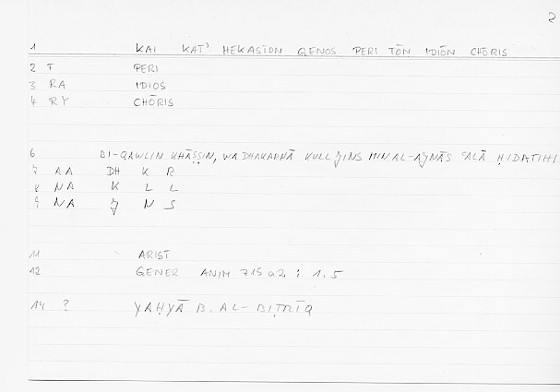 2
1 KAI KAT' HEKASTON GENOS PERI TŌN IDIŌN CHŌRIS
2 T PERI
3 RA IDIOS
4 RY CHŌRIS
6 BI-QAWLIN KHĀṢṢIN, WA DHAKARNĀ KULL ǦINS MIN AL-AǦNĀS ʿALĀ ḤIDATIHI
7 AA DH K R
8 NA K L L
9 NA Ǧ N S
11 ARIST
12 GENER ANIM 715 a2 ; 1.5
14 ? YAḤYĀ B. AL-BIṬRĪQ